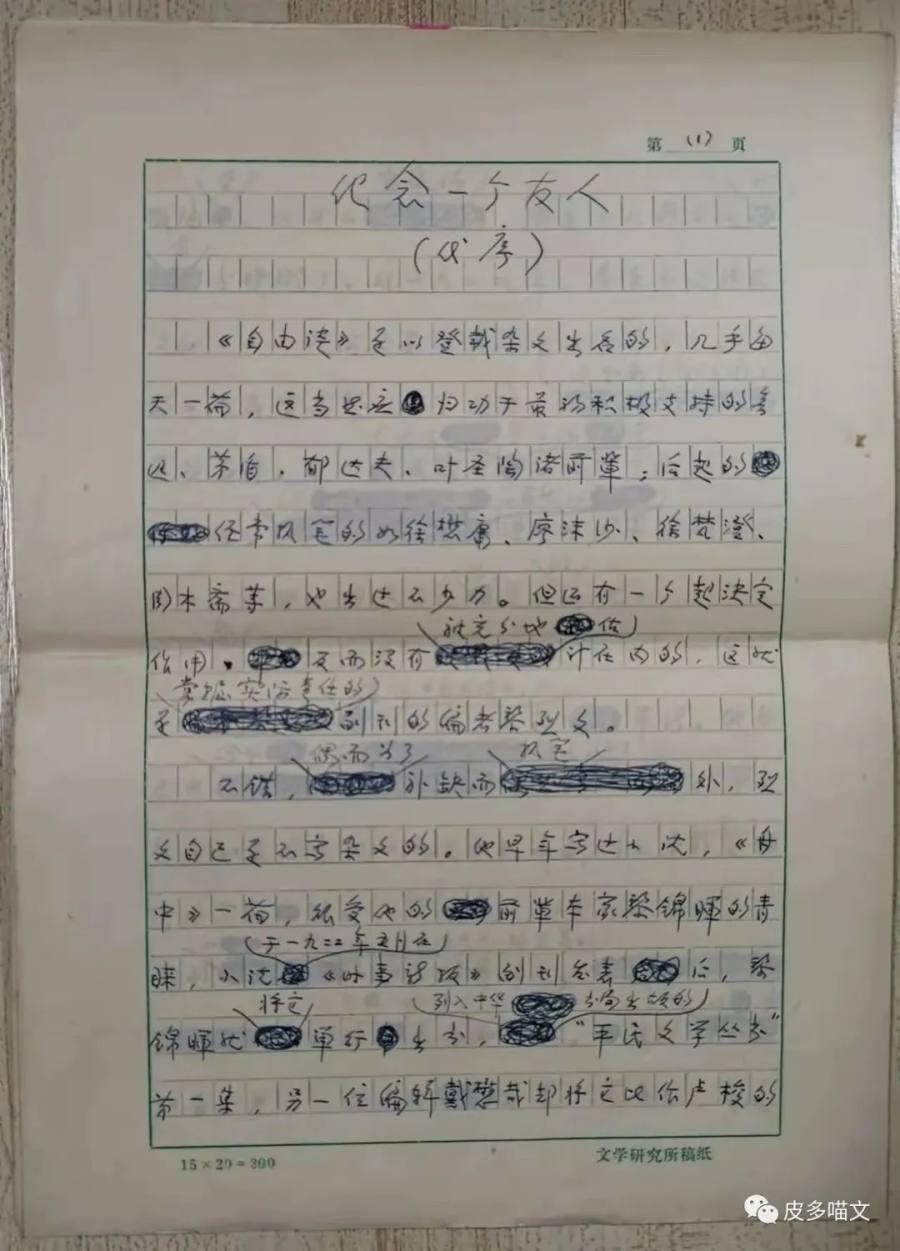 第 (1) 页
纪念一个友人
(代序)
《自由谈》是以登载杂文出名的，几乎每
天一篇，这当然应归功于最初积极支持的鲁
迅、茅盾、郁达夫、叶圣陶诸前辈；后起的
经常执笔的如徐懋庸、廖沫沙、徐梵澄、
周木斋等，也出过不少力。但还有一个起决定
被充分地 估
作用。反而没有 计在内的，这就
掌握实际责任的
是 副刊的编者黎烈文。
偶而为了 执笔
不错， 补缺而 外，烈
文自己是不写杂文的。他早年写过小说，《舟
中》一篇，很受他的前辈本家黎锦晖的青
于一九二二年 月在
睐，小说《时事新报》副刊发表后，黎
将它 列入中华 书局出版的
锦晖就 单行出书， “平民文学丛书”
第一集，另一位编辑戴懋哉却将它比作卢梭的
15×20=300
文学研究所稿纸
皮多喵文